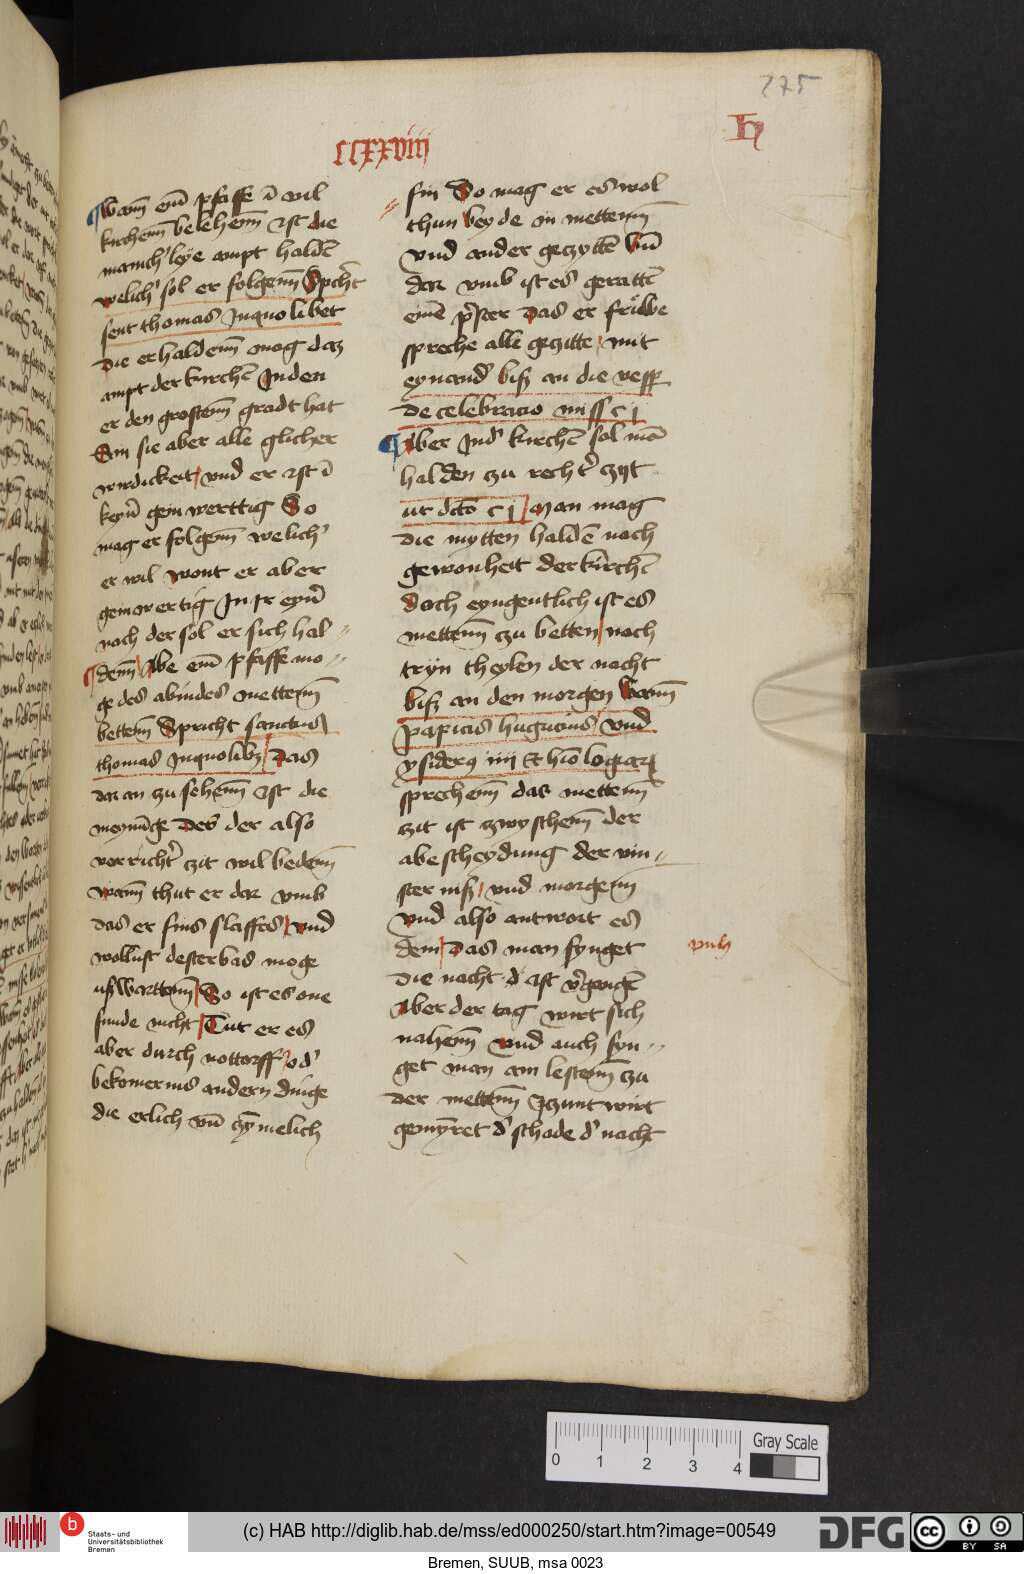 275
H
CCXXVIII
wann ein pfaffe i vil
kirchenn belehenn ist die
manich leye ampt halden
welich sol er folgenn Spricht
sent thomas In quolibet
die er haldenn mag daz
ampt der kirchen In den
er den grostenn gradt hat
Sin sie aber alle glicher
wirdickeit und er ist i
keyner gemwerttig So
mag er folgenn welich
er wil wont er aber
gemwertig In Ir eyner
noch der sol er sich hal
denn Abe ein pfaffe mo
ge des abindes mettenn
bettenn Spricht sanctus
thomas In quolibz Das
dar an zu sehenn ist die
meynunge Des der also
vor richter zit wil bedenn
wann thut er dar vmb
das er sins slaffes und
wollust dester bas moge
uszwarttenn So ist es one
sunde nicht Tut er es
aber durch nottorff od
bekomernis andern dinge
die erlich vnd zymelich
sin So mag er es wol
thun beyde in mettenn
vnd ander gezytten Vnd
dar vmb ist es geratten
eine prister das er friwe
spreche alle gezitte mit
eynand bisz an die vesper
de celebracio miss c j
Aber In der kirchen sol man
halden zu rechter zyt
ut dicto c j Man mag
die mytten halden nach
gewonheit der kirchen
doch eyngentlich ist es
mettenn zu betten noch
tryn theylen der nacht
bisz an den morgen wann
papias hugucius vnd
ysiderus iiii Ethiologiarum
sprechenn das mettenn
zit ist zwyschenn der
abescheydung der vin
sternisz vnd morgenn
vnd also antwort es
dem das man synget
die nacht d ist vergangen
Aber der tag wirt sich
nahenn vnd auch syn
get man am lestenn zu
der mettenn Iczunt wirt
gemynret d schade d nacht
0 1 2 3 4
Gray Scale
b
Staats- und
Universitätsbibliothek
Bremen
(c) HAB http://diglib.hab.de/mss/ed000250/start.htm?image=00549
DFG
cc
BY SA
Bremen, SUUB, msa 0023